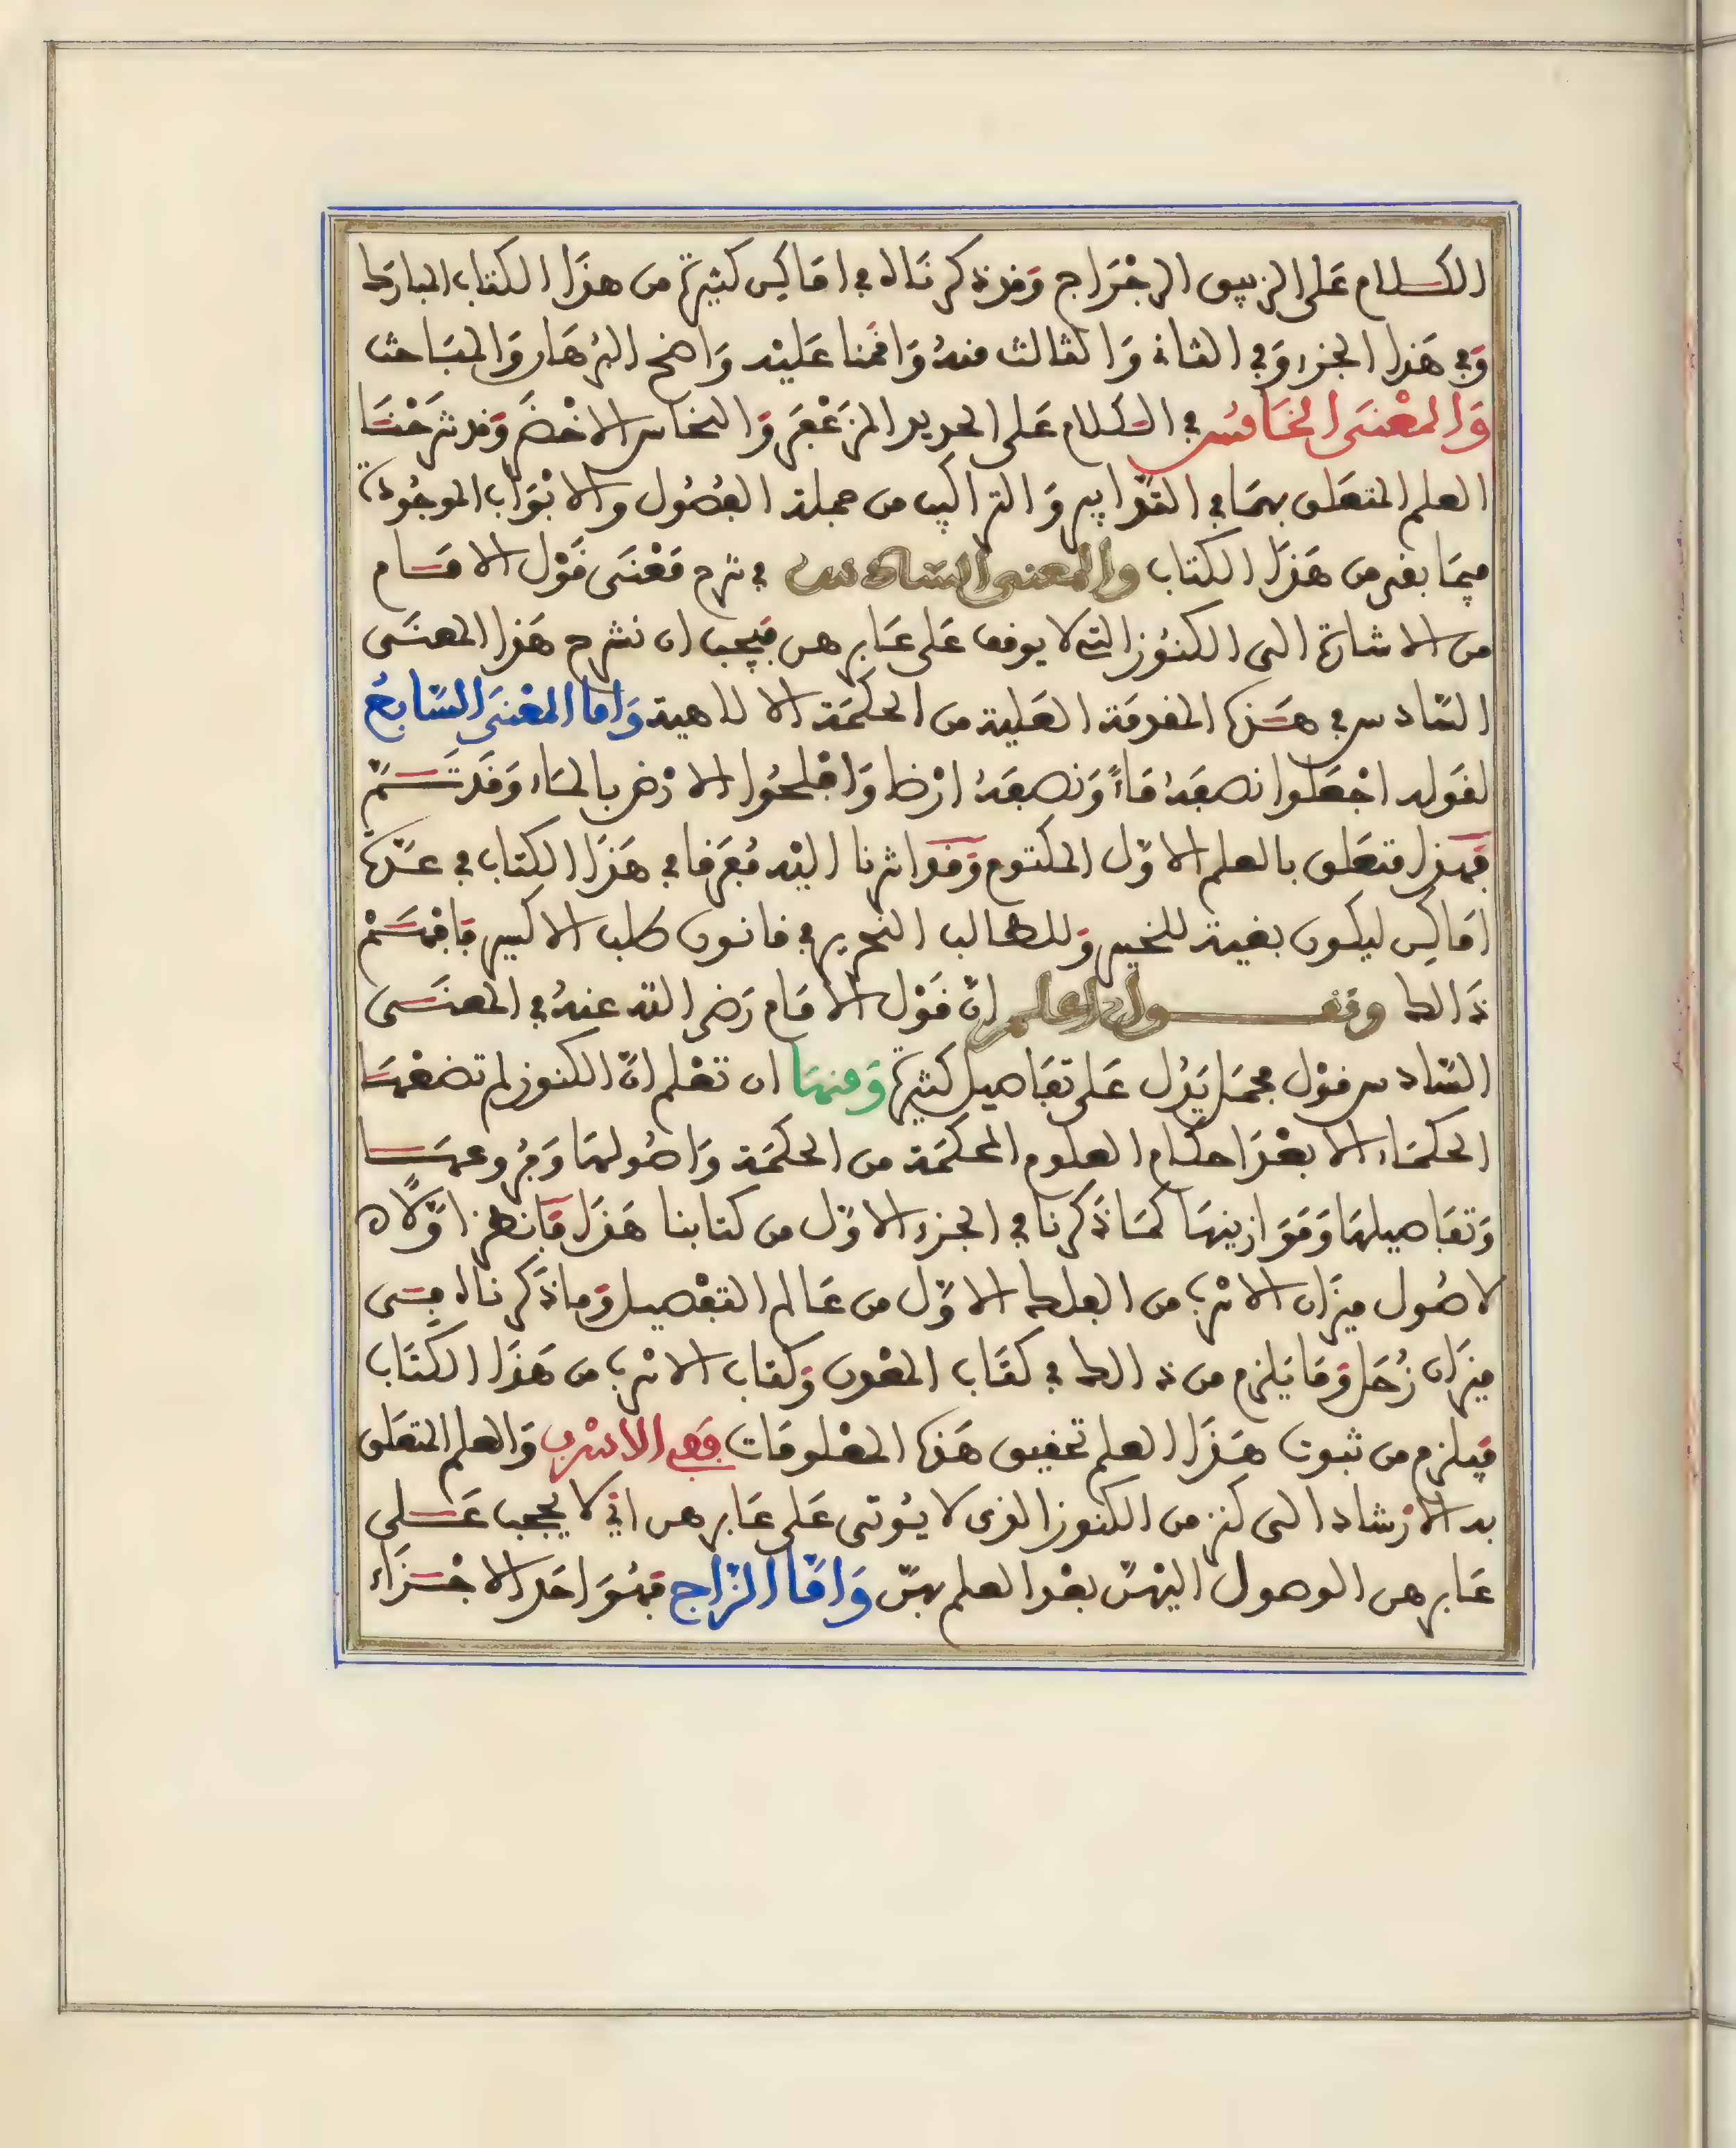 الكلام على الزيبق الرجراج وقد ذكرناه في اماكن كثيرة من هذا الكتاب المبارك
وفي هذا الجزء وفي الثاني والثالث منه واقمنا عليه واضح البرهان والمباحث
والمعنى الخامس في الكلام على الحديد المزعفر والنحاس الاخضر وقد شرحنا
العلم المتعلق بهما في التدابير والتراكيب من جملة الفصول والابواب الموجودة
فيما بقي من هذا الكتاب والمعنى السادس في شرح معنى قول الامام
من الاشارة الى الكنوز التي لا يوقف على عابرهن فيجب ان نشرح هذا المعنى
السادس في هذه المقدمة العلية من الحكمة الالاهية واما المعنى السابع
لقوله اجعلوا نصفه ماءً ونصفه ارضا وافلحوا الارض بالماء وقد تم
فهذا متعلق بالعلم الاول المكتوم وقد اشرنا اليه مفرقا في هذا الكتاب في عدة
اماكن ليكون بغية للخبير وللطالب النحرير في قانون طلب الاكسير فافهم
ذالك ونقول اعلم ان قول الامام رضي الله عنه في المعنى
السادس قول مجمل يدل على تفاصيل كثيرة ومنها ان تعلم ان الكنوز لم تضعها
الحكماء الا بعد احكام العلوم المحكمة من الحكمة واصولها وفروعها
وتفاصيلها وموازينها كما ذكرنا في الجزء الاول من كتابنا هذا فانظر اولا
لاصول ميزان الاسرب من الفلك الاول من عالم التفصيل وما ذكرناه في
ميزان زحل وما يلزم من ذالك في كتاب المعدن وكتاب الاسرب من هذا الكتاب
فيلزم من ثبوت هذا العلم تحقيق هذه المعلومات في الاسرب والعلم المتعلق
به الارشاد الى كنز من الكنوز الذي لا يوتى على عابرهن اي لا يجب على
عابرهن الوصول اليهن بعد العلم بهن واما الزاج فهو احد الاجزاء